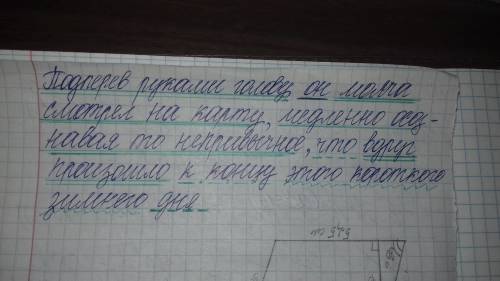 Подперев руками голову он молча
смотрел на карту, медленно осоз-
навая то непривычное, что вдруг
произошло к концу этого короткого
зимнего дня